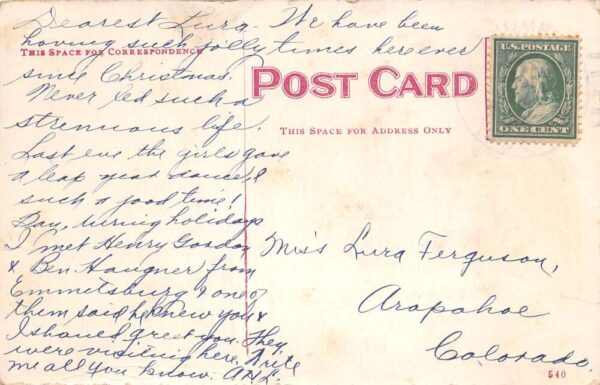 Dearest Lura - We have been
having such jolly times here ever
THIS SPACE FOR CORRESPONDENCE
since Christmas.
Never led such a
strenuous life.
Last eve the girls gave
a leap year dance, &
such a good time!
Say, during holidays
I met Henry Gordon
& Ben Haugner from
Emmetsburg & one of
them said he knew you &
I should greet you. They
were visiting here. Write
me all you know. A.H.L.
POST CARD
THIS SPACE FOR ADDRESS ONLY
U.S. POSTAGE
ONE CENT
Miss Lura Ferguson,
Arapahoe
Colorado.
540